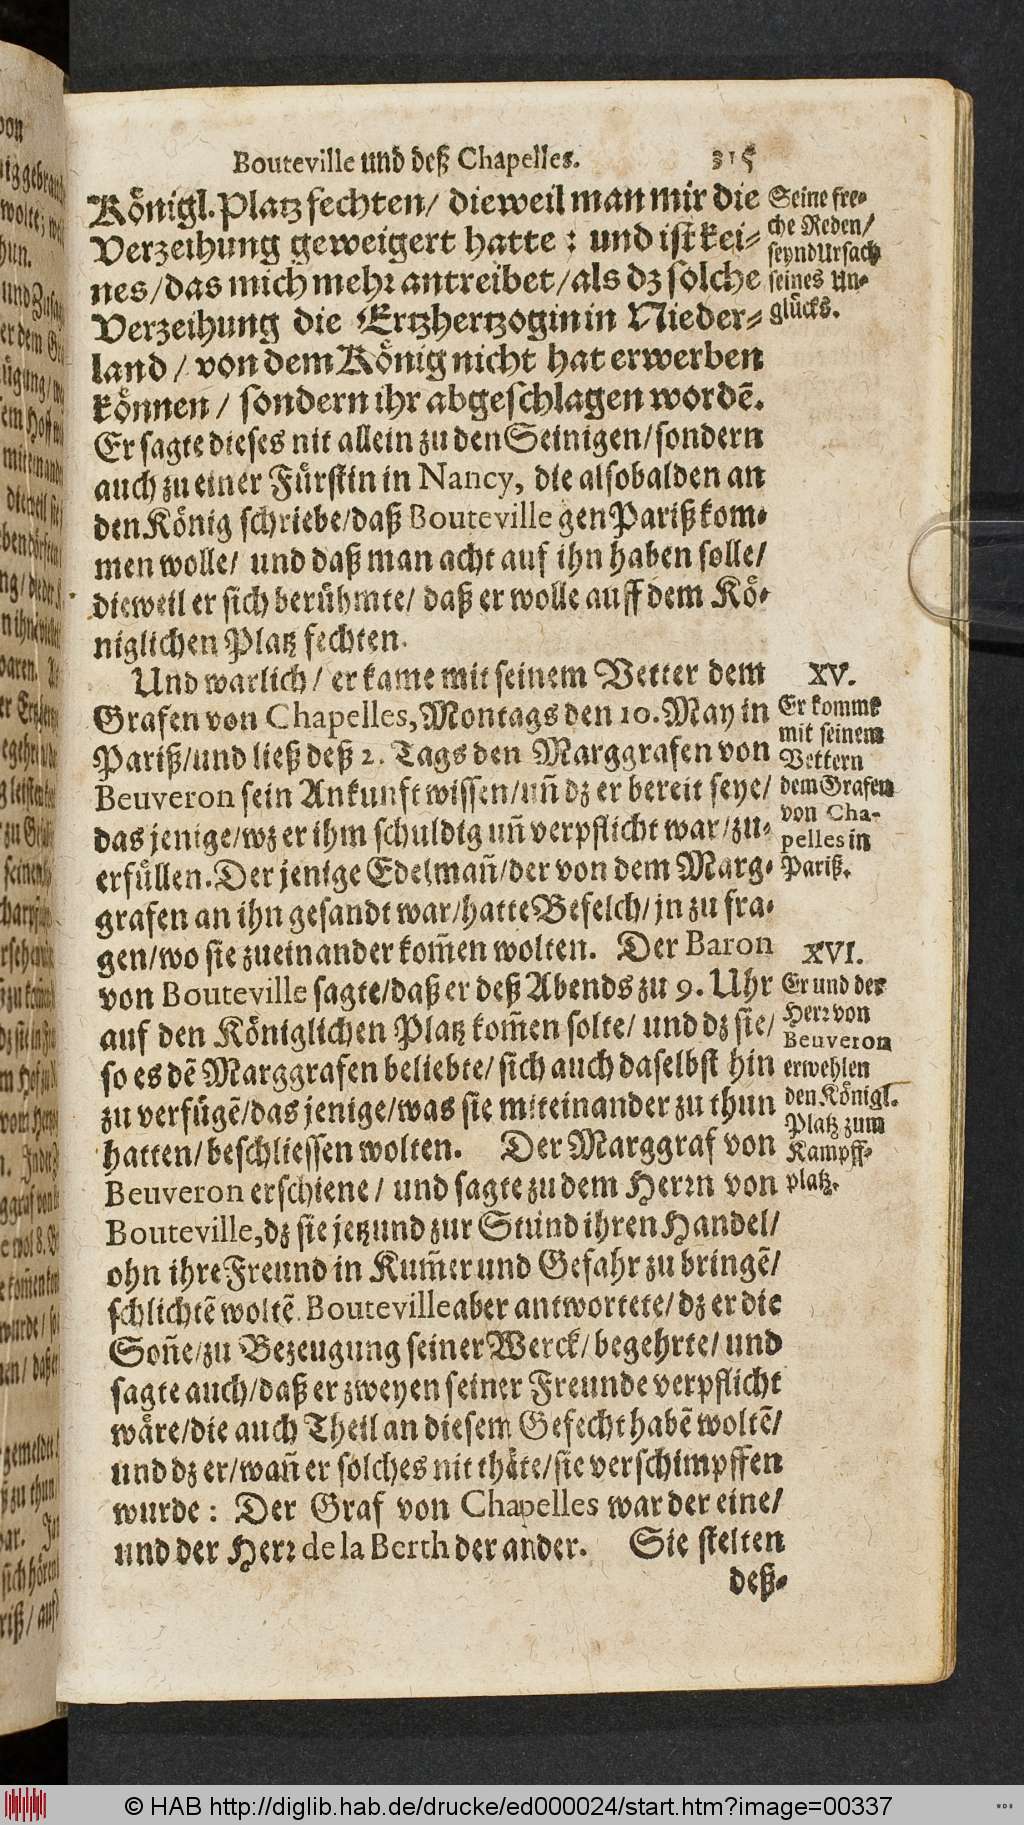 Bouteville und deß Chapelles. 315
Königl. Platz fechten/ dieweil man mir die
Verzeihung geweigert hatte: und ist kei-
nes/das mich mehr antreibet/als dz solche
Verzeihung die Ertzhertzogin in Nieder-
land / von dem König nicht hat erwerben
können / sondern ihr abgeschlagen wordē.
Er sagte dieses nit allein zu den Seinigen/sondern
auch zu einer Fürstin in Nancy, die alsobalden an
den König schriebe/daß Bouteville gen Pariß kom-
men wolle/ und daß man acht auf ihn haben solle/
dieweil er sich berühmte/ daß er wolle auff dem Kö-
niglichen Platz fechten.
Seine fre-
che Reden/
seynd Ursach
seines Un-
glücks.
Und warlich/ er kame mit seinem Vetter dem
Grafen von Chapelles, Montags den 10. May in
Pariß/und ließ deß 2. Tags den Marggrafen von
Beuveron sein Ankunft wissen/uñ dz er bereit seye/
das jenige/wz er ihm schuldig uñ verpflicht war/zu-
erfüllen. Der jenige Edelmañ/der von dem Marg-
grafen an ihn gesandt war/hatte Befelch/jn zu fra-
gen/wo sie zueinander kom̄en wolten. Der Baron
von Bouteville sagte/daß er deß Abends zu 9. Uhr
auf den Königlichen Platz kom̄en solte/ und dz sie/
so es dē Marggrafen beliebte/ sich auch daselbst hin
zu verfügē/das jenige/was sie miteinander zu thun
hatten/ beschliessen wolten. Der Marggraf von
Beuveron erschiene/ und sagte zu dem Herrn von
Bouteville, dz sie jetzund zur Stund ihren Handel/
ohn ihre Freund in Kum̄er und Gefahr zu bringē/
schlichtē woltē. Bouteville aber antwortete/ dz er die
Soñe/zu Bezeugung seiner Werck/ begehrte/ und
sagte auch/daß er zweyen seiner Freunde verpflicht
wäre/die auch Theil an diesem Gefecht habē woltē/
und dz er/wañ er solches nit thäte/sie verschimpffen
wurde: Der Graf von Chapelles war der eine/
und der Herr de la Berth der ander. Sie stelten
deß-
XV.
Er kommt
mit seinem
Vettern
dem Grafen
von Cha-
pelles in
Pariß.
XVI.
Er und der
Herr von
Beuveron
erwehlen
den Königl.
Platz zum
Kampff-
platz.
© HAB http://diglib.hab.de/drucke/ed000024/start.htm?image=00337